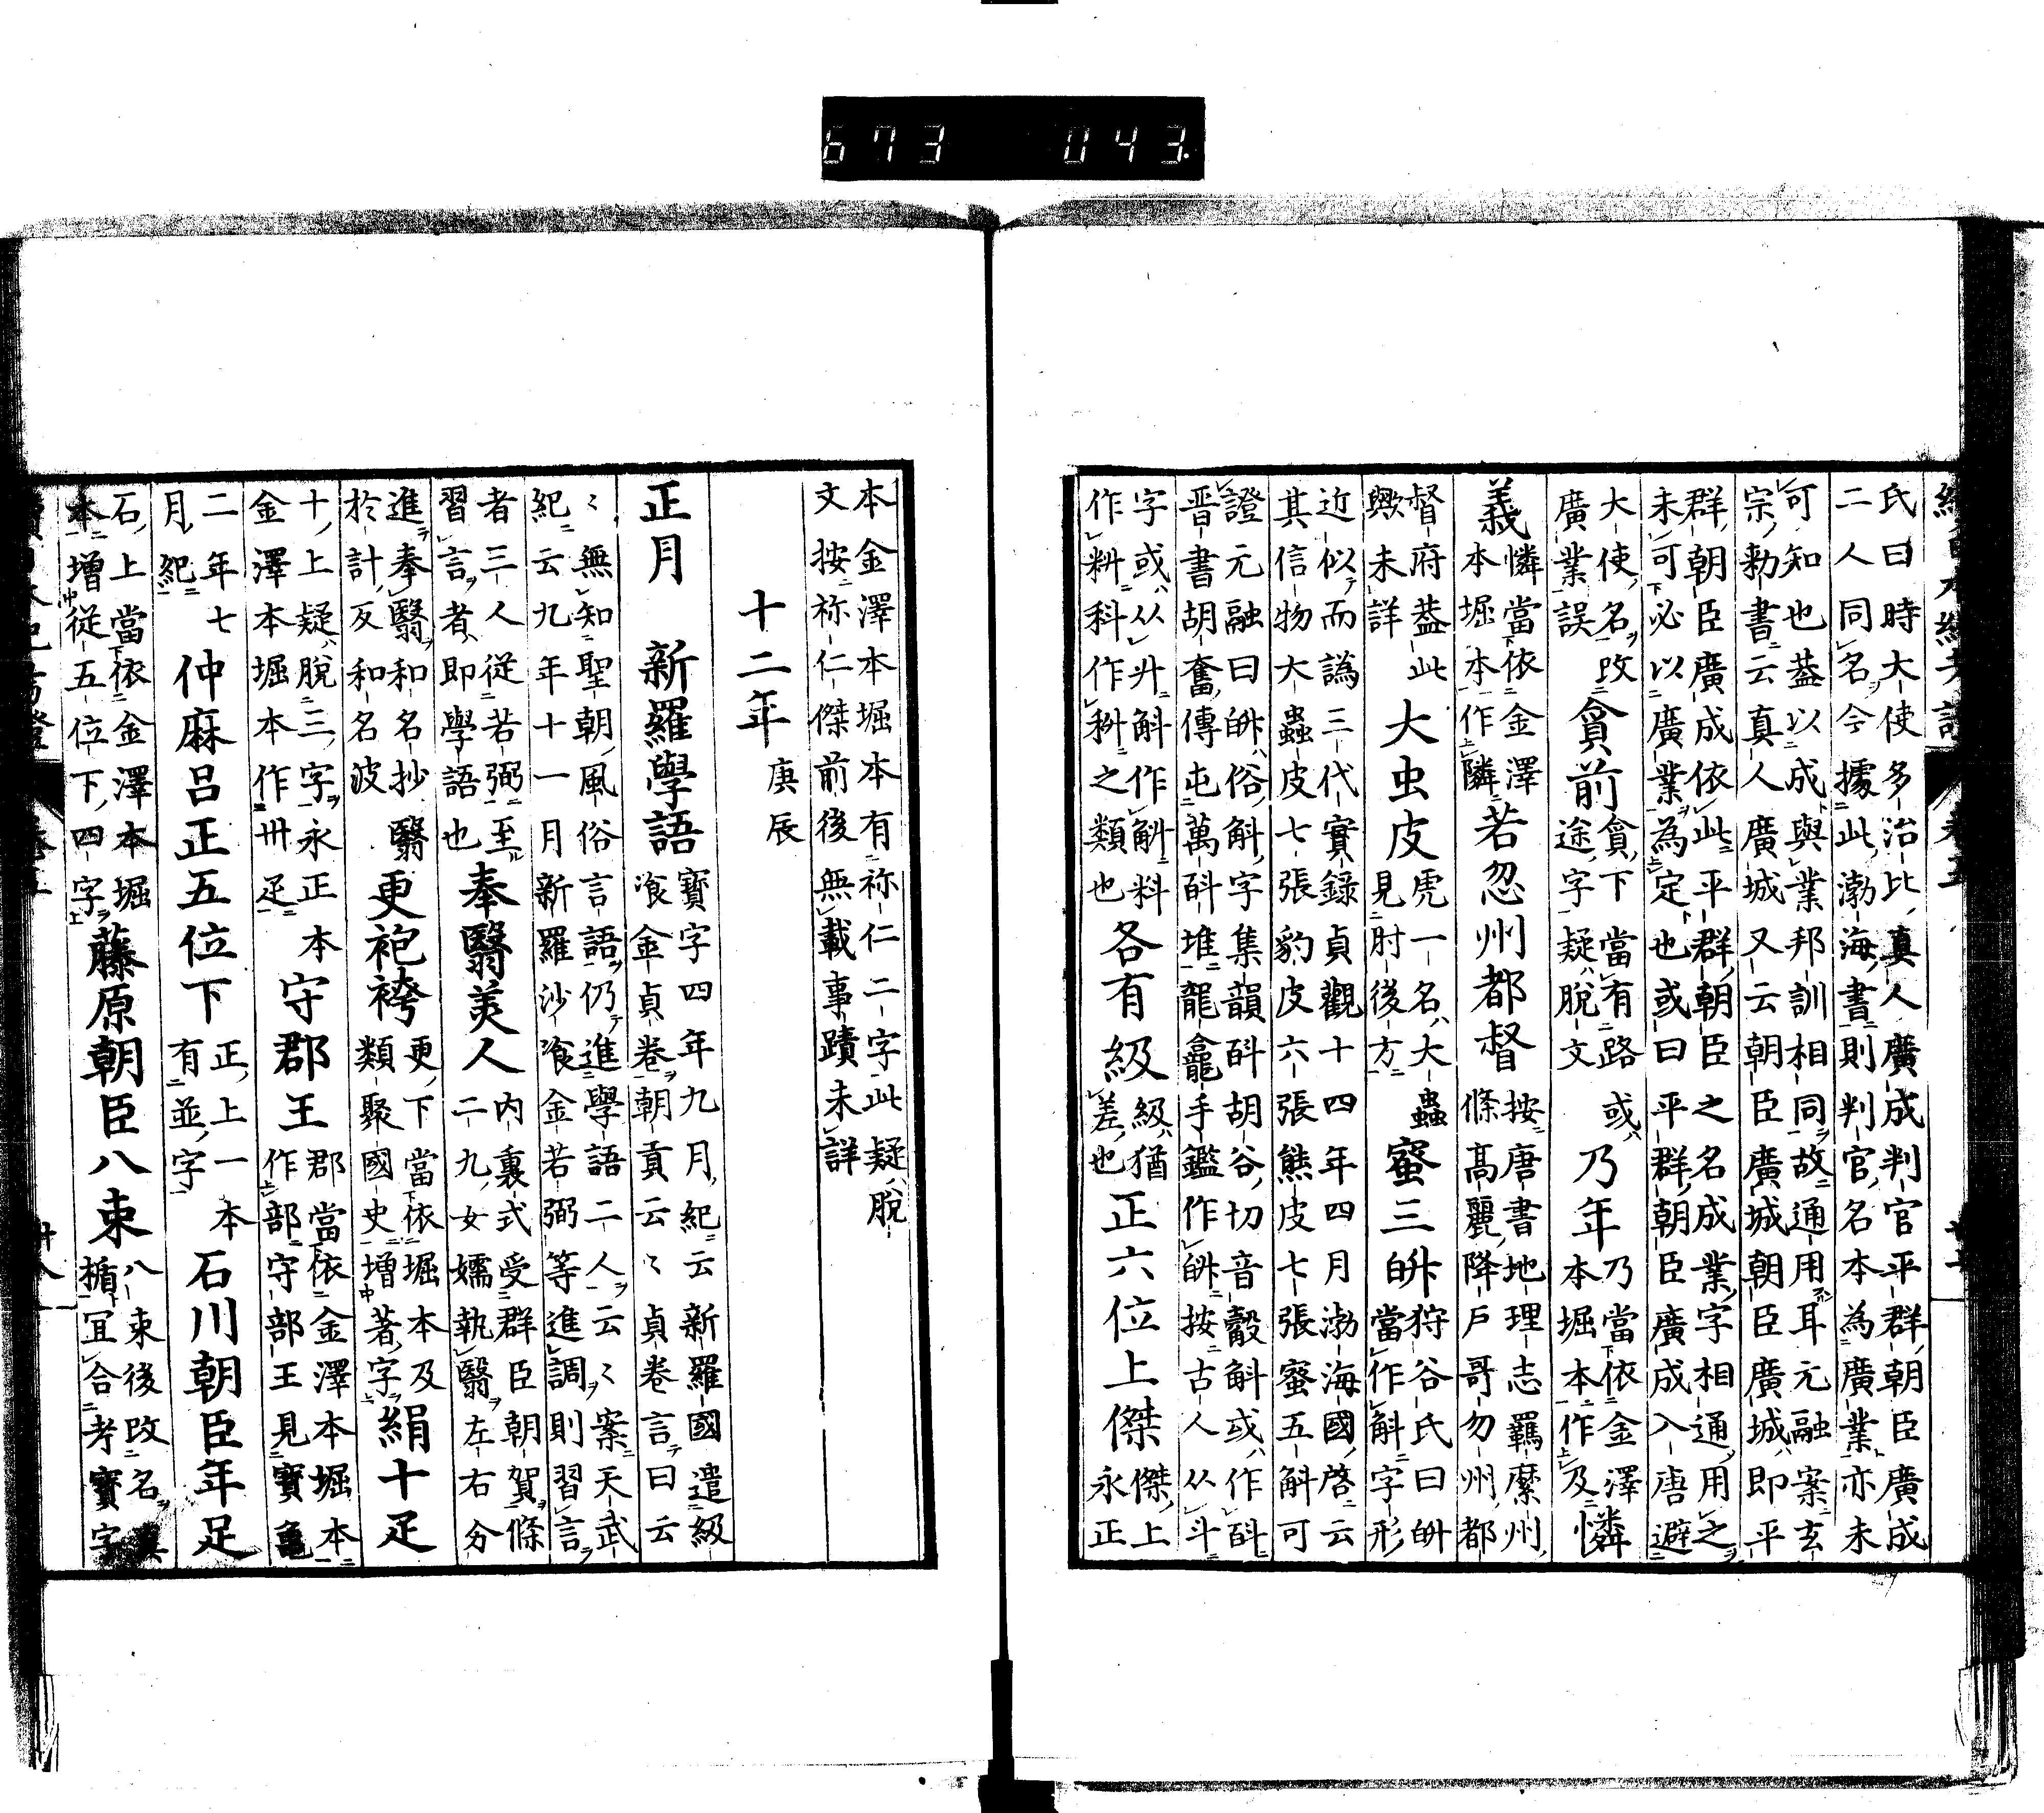 673 043
氏曰時大使多治比真人廣成判官平群朝臣廣成
二人同名今據此渤海書則判官名本為廣業亦未
可知也蓋以成與業邦訓相同故通用耳元融案玄
宗勅書云真人廣城又云朝臣廣城朝臣廣城即平
群朝臣廣成依此平群朝臣之名成業字相通用之
未可必以廣業為定也或曰平群朝臣廣成入唐避
大使名改
廣業誤
貪前
貪下當有路
途字疑脫文
或
乃年
乃當依金澤
本堀本作及
憐
義
憐當依金澤
本堀本作隣
若忽州都督
按唐書地理志羈縻州
條高麗降戶哥勿州都
督府蓋此
歟未詳
大虫皮
虎一名大蟲
見肘後方
蜜三㪷
狩谷氏曰㪷
當作斛字形
近似而譌三代實錄貞觀十四年四月渤海國啓云
其信物大蟲皮七張豹皮六張熊皮七張蜜五斛可
證元融曰㪷俗斛字集韻㪶胡谷切音觳斛或作㪶
晋書胡奮傳屯萬㪶堆龍龕手鑑作㪷按古人从斗
字或从升斛作斛料
作䊆科作𥝠之類也
各有級
級猶
差也
正六位上傑
傑上
永正
本金澤本堀本有祢仁二字此疑脫
文按祢仁傑前後無載事蹟未詳
十二年
庚辰
正月 新羅學語
寶字四年九月紀云新羅國遣級
飡金貞卷朝貢云〻貞卷言曰云
〻無知聖朝風俗言語仍進學語二人云〻案天武
紀云九年十一月新羅沙飡金若弼等進調則習言
者三人從若弼至
習言者即學語也
奉翳美人
內裏式受群臣朝賀條
二九女嬬執翳左右分
進奉翳和名抄翳
於計反和名波
更袍袴
更下當依堀本及
類聚國史增著字
絹十疋
十上疑脫三字永正本
金澤本堀本作卅疋
守郡王
郡當依金澤本堀本
作部守部王見寶龜
二年七
月紀
仲麻呂正五位下
正上一本
有並字
石川朝臣年足
石上當依金澤本堀
本增從五位下四字
藤原朝臣八束
八束後改名真
楯宜合考寶字